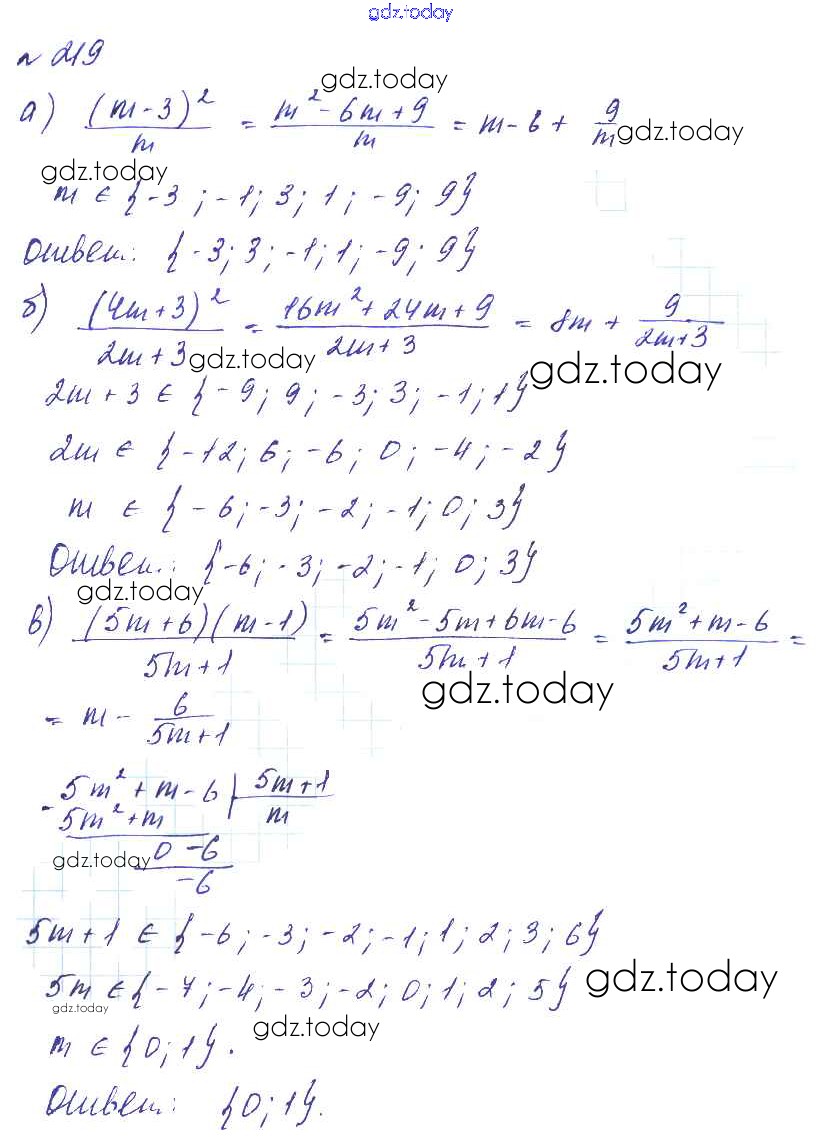 gdz.today
№ 219
gdz.today
а) (m-3)²/m = (m²-6m+9)/m = m-6+ 9/m gdz.today
gdz.today
m ∈ {-3; -1; 3; 1; -9; 9}
Ответ: {-3; 3; -1; 1; -9; 9}
б) (4m+3)²/(2m+3) = (16m²+24m+9)/(2m+3) = 8m + 9/(2m+3)
gdz.today gdz.today
2m+3 ∈ {-9; 9; -3; 3; -1; 1}
2m ∈ {-12; 6; -6; 0; -4; -2}
m ∈ {-6; -3; -2; -1; 0; 3}
Ответ: {-6; -3; -2; -1; 0; 3}
gdz.today
в) (5m+6)(m-1)/(5m+1) = (5m²-5m+6m-6)/(5m+1) = (5m²+m-6)/(5m+1) =
gdz.today
= m - 6/(5m+1)
- 5m²+m-6 | 5m+1
5m²+m m
0-6
gdz.today
-6
5m+1 ∈ {-6; -3; -2; -1; 1; 2; 3; 6}
5m ∈ {-7; -4; -3; -2; 0; 1; 2; 5} gdz.today
gdz.today
gdz.today
m ∈ {0; 1}.
Ответ: {0; 1}.